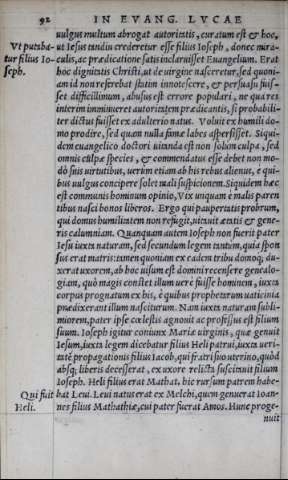 92 IN EVANG. LVCAE
uulgus multum abrogat autoritatis, curatum est & hoc,
Vt putaba- ut Iesus tandiu crederetur esse filius Ioseph, donec mira-
tur filius Io- culis, ac prædicatione satis inclaruisset Euangelium. Erat
seph. hoc dignitatis Christi, ut de uirgine nasceretur, sed quoni-
am id non referebat statim innotescere, & persuasu fuis-
set difficillimum, abusus est errore populari, ne qua res
interim imminueret autoritatem prædicantis, si probabili-
ter dictus fuisset ex adulterio natus. Voluit ex humili do-
mo prodire, sed quam nulla famæ labes aspersisset. Siqui-
dem euangelico doctori uitanda est non solum culpa, sed
omnis culpæ species, & commendatus esse debet non mo-
dò suis uirtutibus, uerùm etiam ab his rebus alienus, è qui-
bus uulgus concipere solet mali suspicionem. Siquidem hæc
est communis hominum opinio, Vix unquam è malis paren
tibus nasci bonos liberos. Ergo qui paupertatis probrum,
qui domus humilitatem non refugit, uitauit ætatis & gene-
ris calumniam. Quanquam autem Ioseph non fuerit pater
Iesu iuxta naturam, sed secundum legem tantum, quia spon
sus erat matris: tamen quoniam ex eadem tribu domoq; du-
xerat uxorem, ab hoc uisum est domini recensere genealo-
giam, quò magis constet illum uerè fuisse hominem, iuxta
corpus prognatum ex his, è quibus prophetarum uaticinia
prædixerant illum nasciturum. Nam iuxta naturam subli-
miorem, pater ipse cælestis agnouit ac professus est filium
suum. Ioseph igitur coniunx Mariæ uirginis, quæ genuit
Iesum, iuxta legem dicebatur filius Heli patrui, iuxta ueri-
tatē propagationis filius Iacob, qui fratri suo uterino, quòd
absq; liberis decesserat, ex uxore relicta suscitauit filium
Ioseph. Heli filius erat Mathat, hic rursum patrem habe-
Qui fuit bat Leui. Leui natus erat ex Melchi, quem genuerat Ioan-
Heli. nes filius Mathathiæ, cui pater fuerat Amos. Hunc proge-
nuit